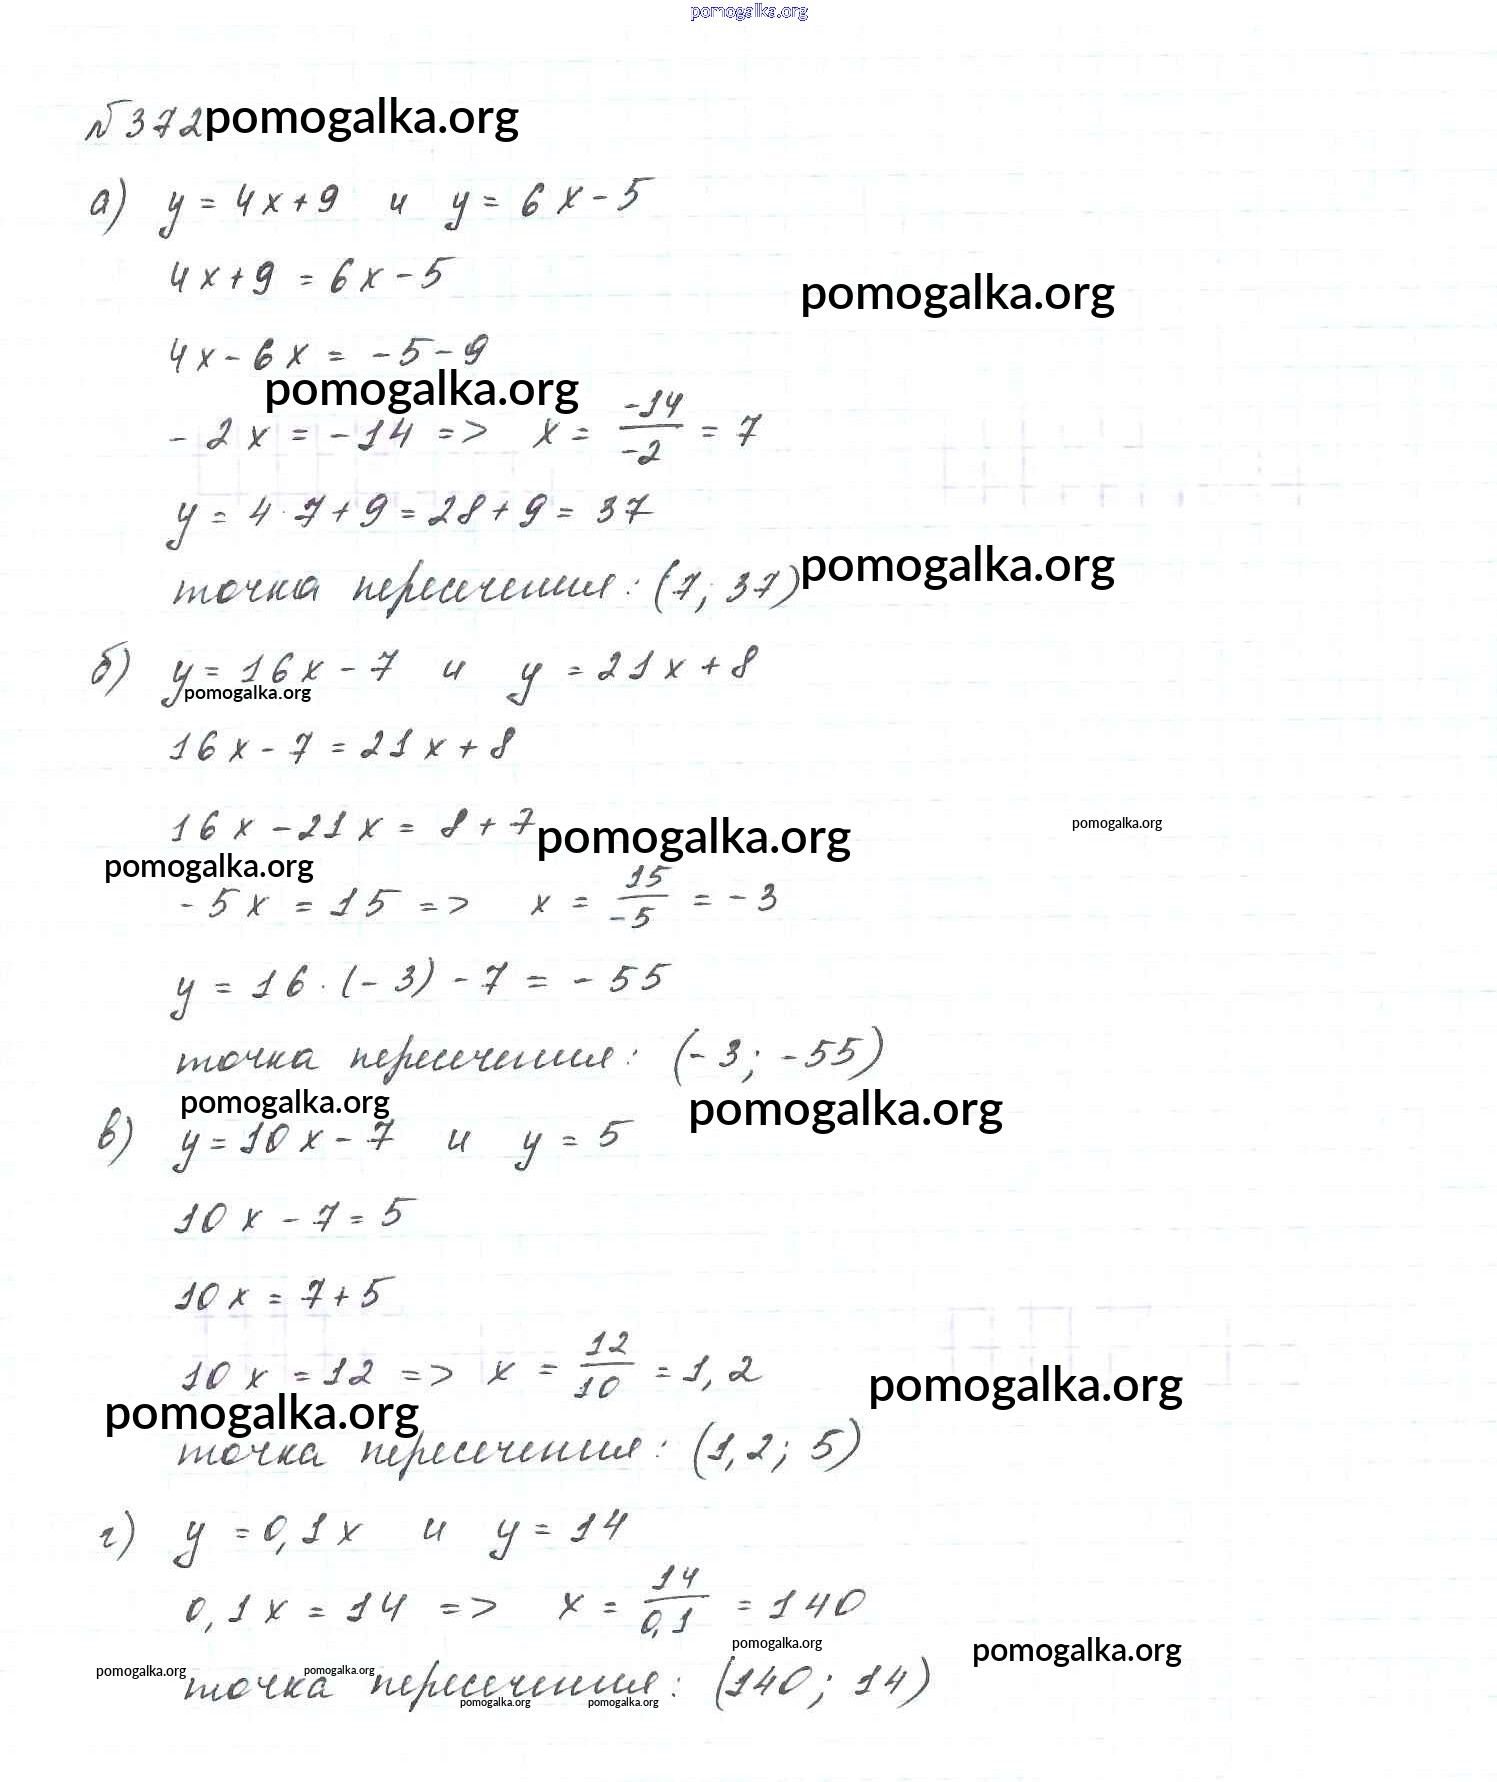 pomogalka.org
№ 372 pomogalka.org
а) y = 4x + 9 и y = 6x - 5
4x + 9 = 6x - 5
pomogalka.org
4x - 6x = -5 - 9
pomogalka.org
-2x = -14 => x = -14/-2 = 7
y = 4 · 7 + 9 = 28 + 9 = 37
точка пересечения: (7; 37) pomogalka.org
б) y = 16x - 7 и y = 21x + 8
pomogalka.org
16x - 7 = 21x + 8
16x - 21x = 8 + 7 pomogalka.org pomogalka.org
pomogalka.org
-5x = 15 => x = 15/-5 = -3
y = 16 · (-3) - 7 = -55
точка пересечения: (-3; -55)
pomogalka.org pomogalka.org
в) y = 10x - 7 и y = 5
10x - 7 = 5
10x = 7 + 5
10x = 12 => x = 12/10 = 1,2 pomogalka.org
pomogalka.org
точка пересечения: (1,2; 5)
г) y = 0,1x и y = 14
0,1x = 14 => x = 14/0,1 = 140
pomogalka.org pomogalka.org
pomogalka.org pomogalka.org
точка пересечения: (140; 14)
pomogalka.org pomogalka.org